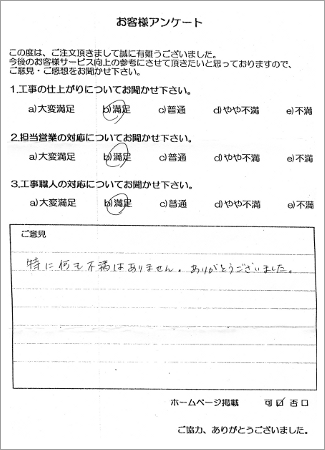 お客様アンケート
この度は、ご注文頂きまして誠に有難うございました。
今後のお客様サービス向上の参考にさせて頂きたいと思っておりますので、
ご意見・ご感想をお聞かせ下さい。
1.工事の仕上がりについてお聞かせ下さい。
a)大変満足 b)満足 c)普通 d)やや不満 e)不満
2.担当営業の対応についてお聞かせ下さい。
a)大変満足 b)満足 c)普通 d)やや不満 e)不満
3.工事職人の対応についてお聞かせ下さい。
a)大変満足 b)満足 c)普通 d)やや不満 e)不満
ご意見
特に何も不満はありません。ありがとうございました。
ホームページ掲載 可☑ 否□
ご協力、ありがとうございました。